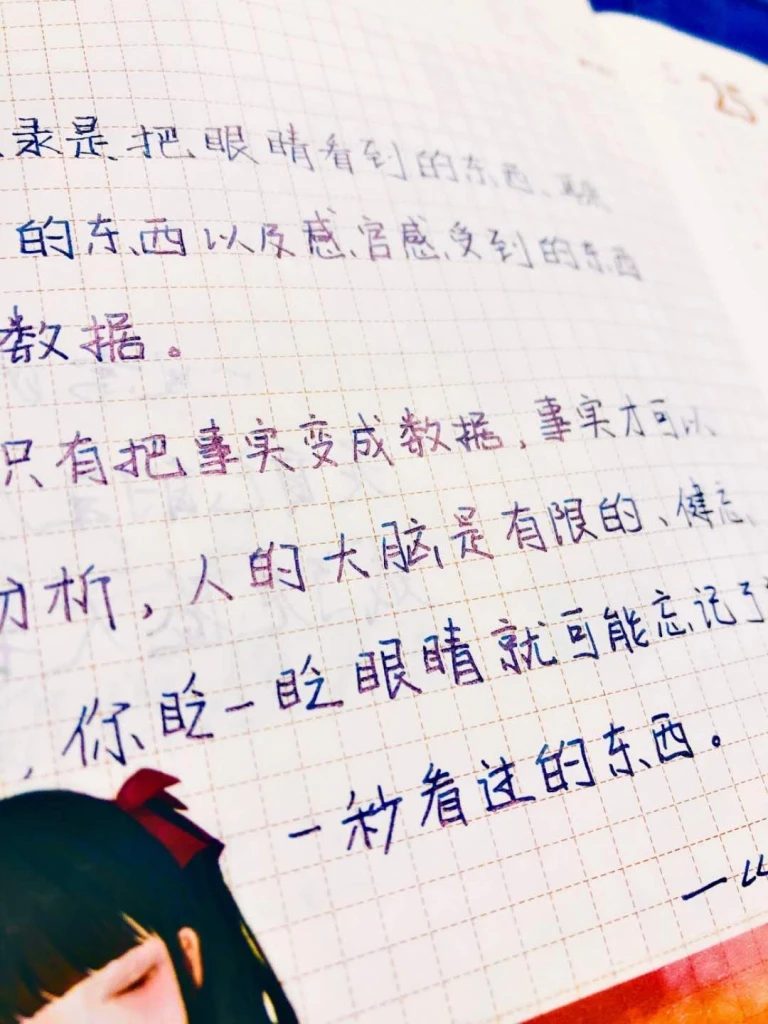 25
录是把眼睛看到的东西、
的东西以及感官感受到的东西
数据。
只有把事实变成数据,事实才可以
分析,人的大脑是有限的、健忘
,你眨一眨眼睛就可能忘记了
一秒看过的东西。
一